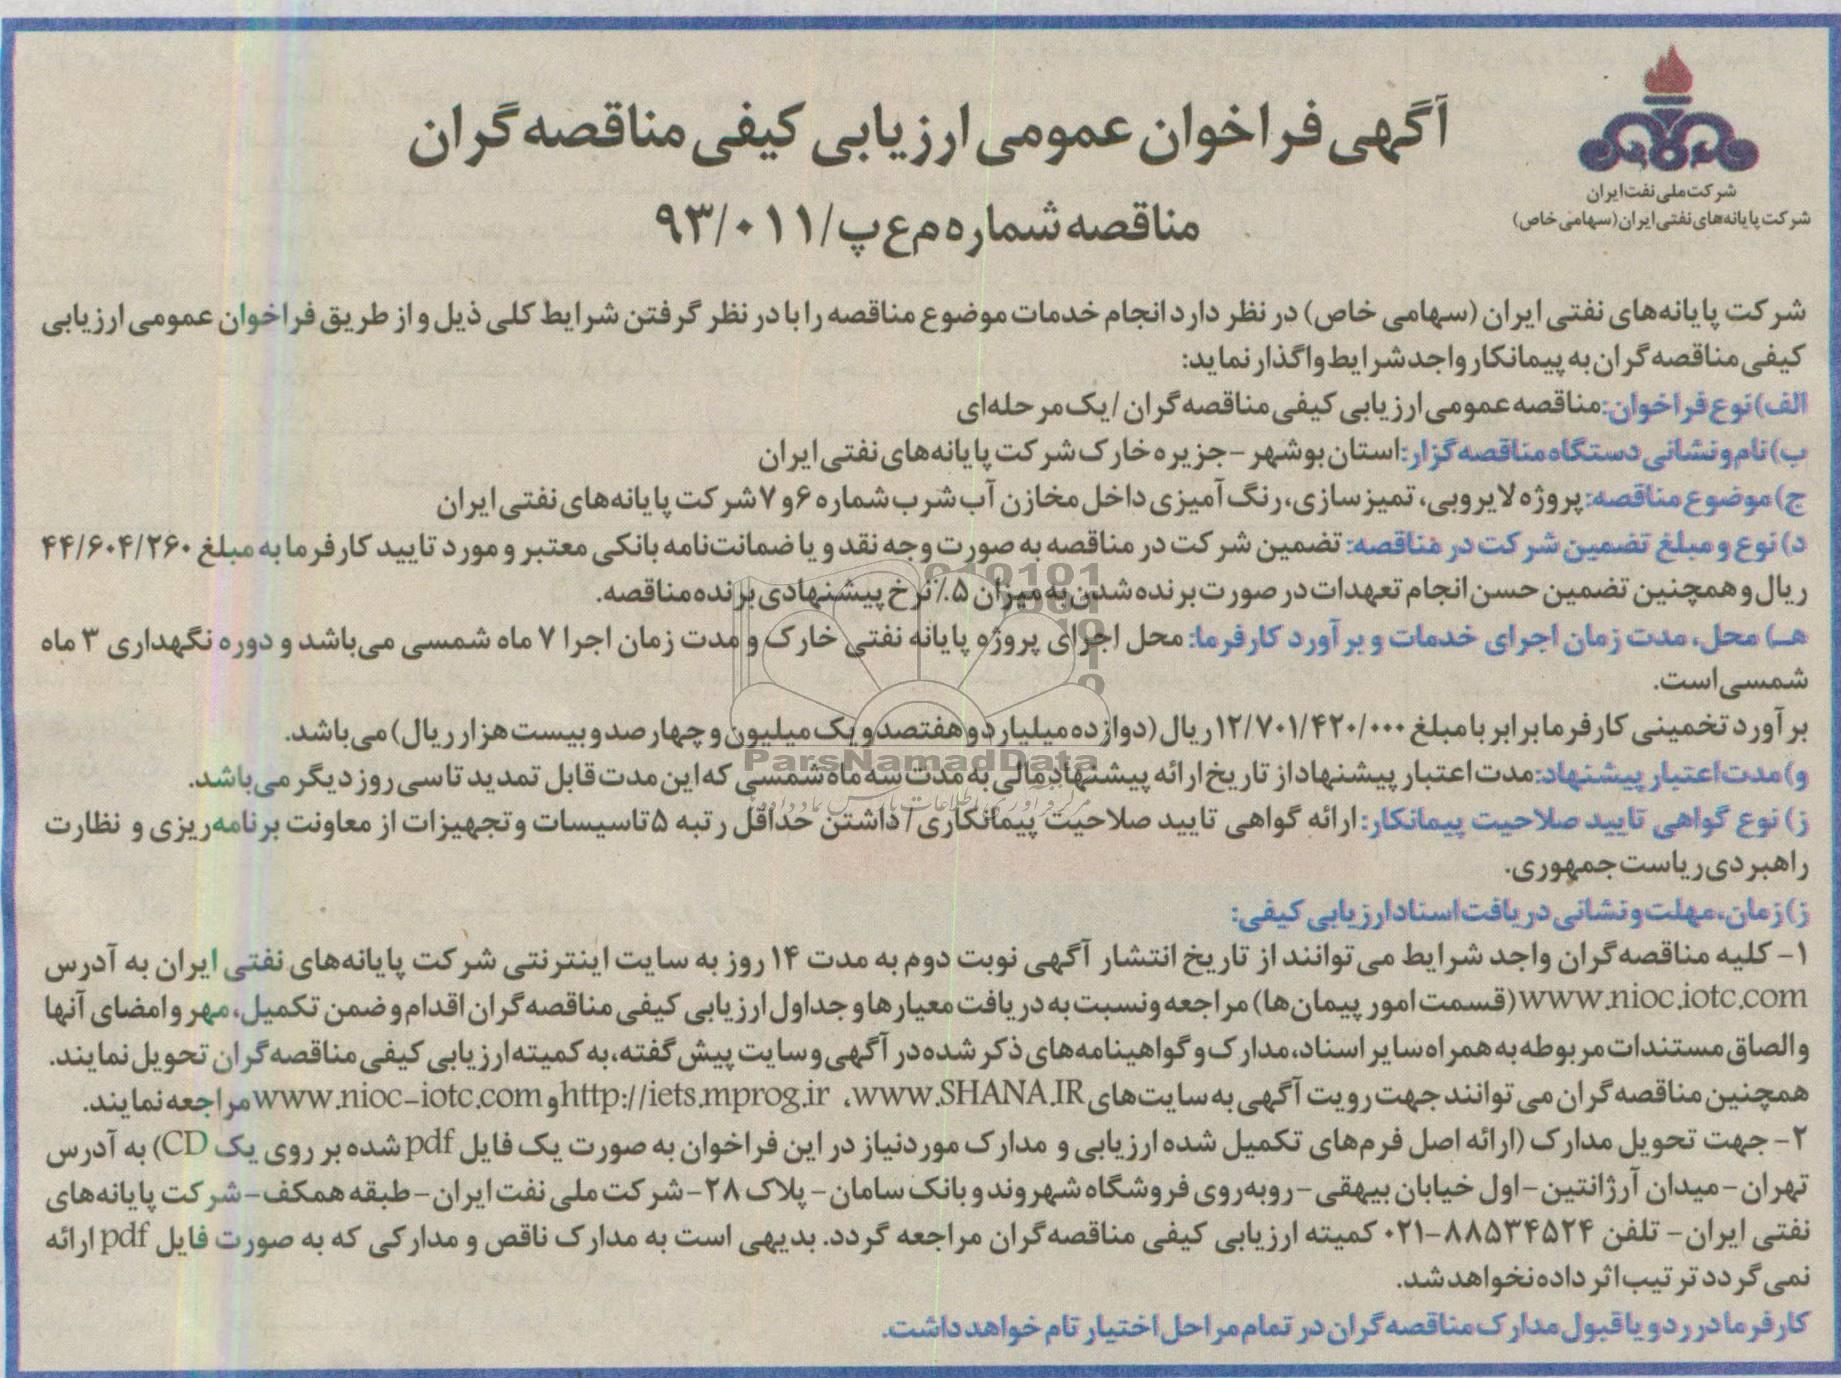 شرکت ملی نفت ایران
شرکت پایانه‌های نفتی ایران (سهامی خاص)
آگهی فراخوان عمومی ارزیابی کیفی مناقصه گران
مناقصه شماره م ع پ/۹۳/۰۱۱
شرکت پایانه‌های نفتی ایران (سهامی خاص) در نظر دارد انجام خدمات موضوع مناقصه را با در نظر گرفتن شرایط کلی ذیل و از طریق فراخوان عمومی ارزیابی
کیفی مناقصه گران به پیمانکار واجد شرایط واگذار نماید:
الف) نوع فراخوان: مناقصه عمومی ارزیابی کیفی مناقصه گران / یک مرحله‌ای
ب) نام و نشانی دستگاه مناقصه گزار: استان بوشهر - جزیره خارک شرکت پایانه‌های نفتی ایران
ج) موضوع مناقصه: پروژه لایروبی، تمیز سازی، رنگ آمیزی داخل مخازن آب شرب شماره ۶ و ۷ شرکت پایانه‌های نفتی ایران
د) نوع و مبلغ تضمین شرکت در مناقصه: تضمین شرکت در مناقصه به صورت وجه نقد و یا ضمانت‌نامه بانکی معتبر و مورد تایید کارفرما به مبلغ ۴۴/۶۰۴/۲۶۰
ریال و همچنین تضمین حسن انجام تعهدات در صورت برنده شدن به میزان ۵٪ نرخ پیشنهادی برنده مناقصه.
هـ) محل، مدت زمان اجرای خدمات و برآورد کارفرما: محل اجرای پروژه پایانه نفتی خارک و مدت زمان اجرا ۷ ماه شمسی می‌باشد و دوره نگهداری ۳ ماه
شمسی است.
برآورد تخمینی کارفرما برابر با مبلغ ۱۲/۷۰۱/۴۲۰/۰۰۰ ریال (دوازده میلیارد و هفتصد و یک میلیون و چهار صد و بیست هزار ریال) می‌باشد.
و) مدت اعتبار پیشنهاد: مدت اعتبار پیشنهاد از تاریخ ارائه پیشنهاد مالی به مدت سه ماه شمسی که این مدت قابل تمدید تا سی روز دیگر می‌باشد.
ز) نوع گواهی تایید صلاحیت پیمانکار: ارائه گواهی تایید صلاحیت پیمانکاری / داشتن حداقل رتبه ۵ تاسیسات و تجهیزات از معاونت برنامه‌ریزی و نظارت
راهبردی ریاست جمهوری.
ز) زمان، مهلت و نشانی دریافت اسناد ارزیابی کیفی:
۱- کلیه مناقصه گران واجد شرایط می توانند از تاریخ انتشار آگهی نوبت دوم به مدت ۱۴ روز به سایت اینترنتی شرکت پایانه‌های نفتی ایران به آدرس
www.nioc.iotc.com (قسمت امور پیمان‌ها) مراجعه و نسبت به دریافت معیارها و جداول ارزیابی کیفی مناقصه گران اقدام و ضمن تکمیل، مهر و امضای آنها
و الصاق مستندات مربوطه به همراه سایر اسناد، مدارک و گواهینامه‌های ذکر شده در آگهی و سایت پیش گفته، به کمیته ارزیابی کیفی مناقصه گران تحویل نمایند.
همچنین مناقصه گران می توانند جهت رویت آگهی به سایت‌های www.SHANA.IR، http://iets.mprog.ir و www.nioc-iotc.com مراجعه نمایند.
۲- جهت تحویل مدارک (ارائه اصل فرم‌های تکمیل شده ارزیابی و مدارک مورد نیاز در این فراخوان به صورت یک فایل pdf شده بر روی یک CD) به آدرس
تهران - میدان آرژانتین - اول خیابان بیهقی - روبه‌روی فروشگاه شهروند و بانک سامان - پلاک ۲۸ - شرکت ملی نفت ایران - طبقه همکف - شرکت پایانه‌های
نفتی ایران - تلفن ۸۸۵۳۴۵۲۴-۰۲۱ کمیته ارزیابی کیفی مناقصه گران مراجعه گردد. بدیهی است به مدارک ناقص و مدارکی که به صورت فایل pdf ارائه
نمی گردد ترتیب اثر داده نخواهد شد.
کارفرما در رد و یا قبول مدارک مناقصه گران در تمام مراحل اختیار تام خواهد داشت.
ParsNamadData